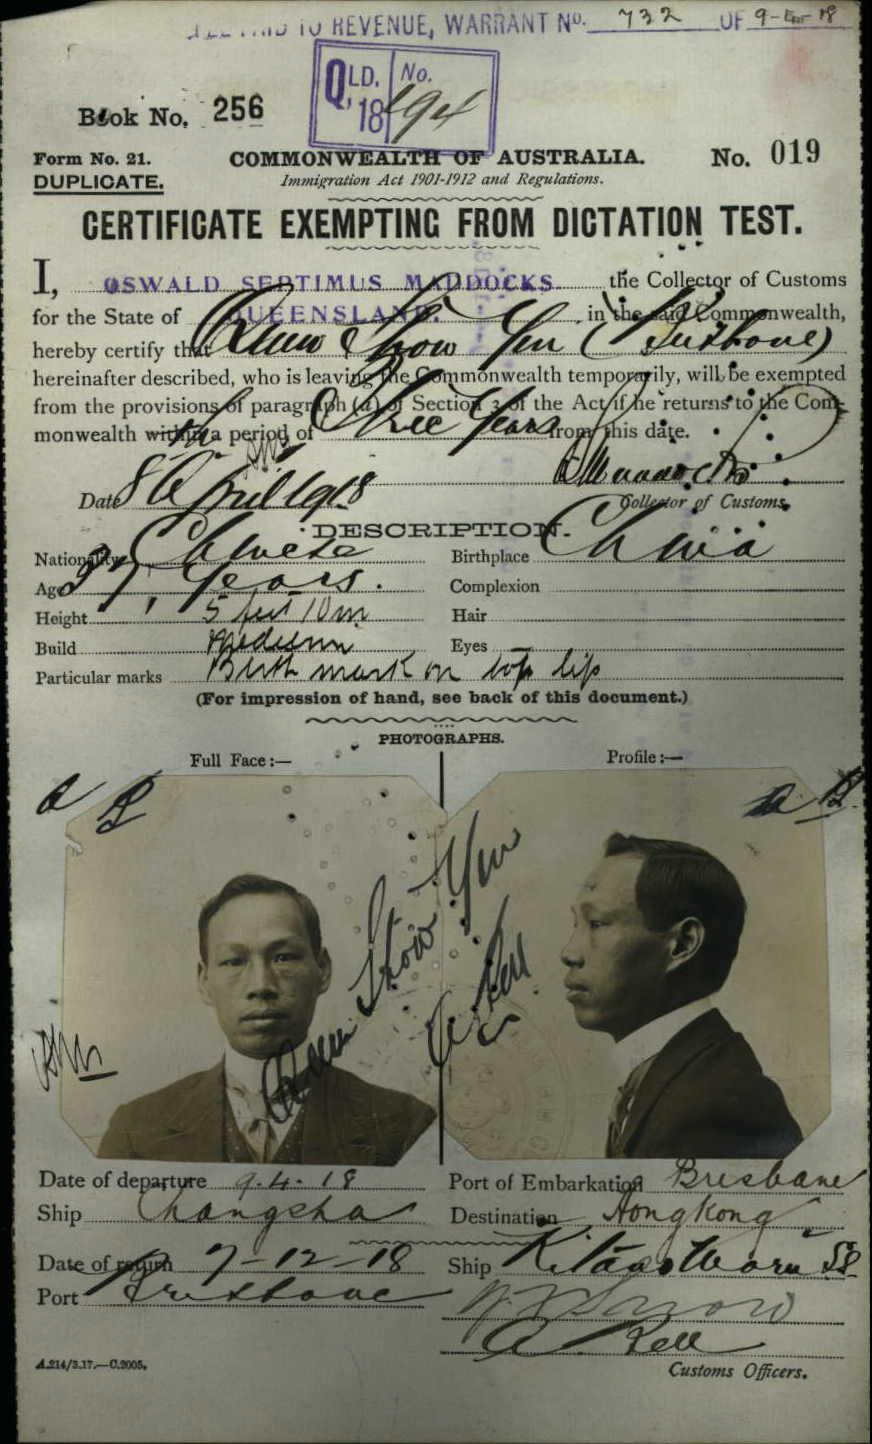 REVENUE, WARRANT No. 732 OF 9-4-18
QLD. No.
18 194
Book No. 256
Form No. 21. COMMONWEALTH OF AUSTRALIA. No. 019
DUPLICATE. Immigration Act 1901-1912 and Regulations.
CERTIFICATE EXEMPTING FROM DICTATION TEST.
I, OSWALD SEPTIMUS MADDOCKS the Collector of Customs
for the State of QUEENSLAND. in the said Commonwealth,
hereby certify that Show Yen (Brisbane)
hereinafter described, who is leaving the Commonwealth temporarily, will be exempted
from the provisions of paragraph (a) of Section 3 of the Act if he returns to the Com-
monwealth within a period of Three Years from this date.
Date 8th April 1918
Collector of Customs.
DESCRIPTION.
Nationality Chinese Birthplace China
Age 37 Years. Complexion
Height 5 feet 10 in Hair
Build Medium Eyes
Particular marks Birth mark on top lip
(For impression of hand, see back of this document.)
PHOTOGRAPHS.
Full Face:— Profile:—
Show Yen
A. Kell
Date of departure 9.4.18 Port of Embarkation Brisbane
Ship Changsha Destination Hongkong
Date of return 7-12-18 Ship Kitano Maru SS
Port Brisbane
A. Kell
A.214/3.17.—C.2005. Customs Officers.